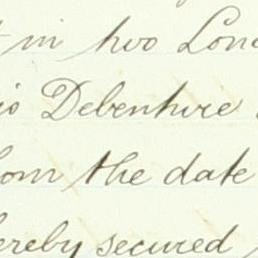 in two Lon
Debenture
from the date
hereby secured